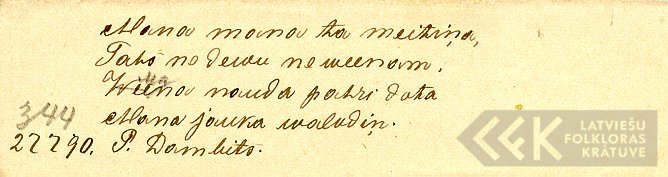 Mana mana ta meitiņa,
Tahs nodewu neweenam.
Wiņa nauda pahri dota
Mana jauka walodiņ.
344
22790. P. Dambits.
LATVIEŠU
FOLKLORAS
KRĀTUVE